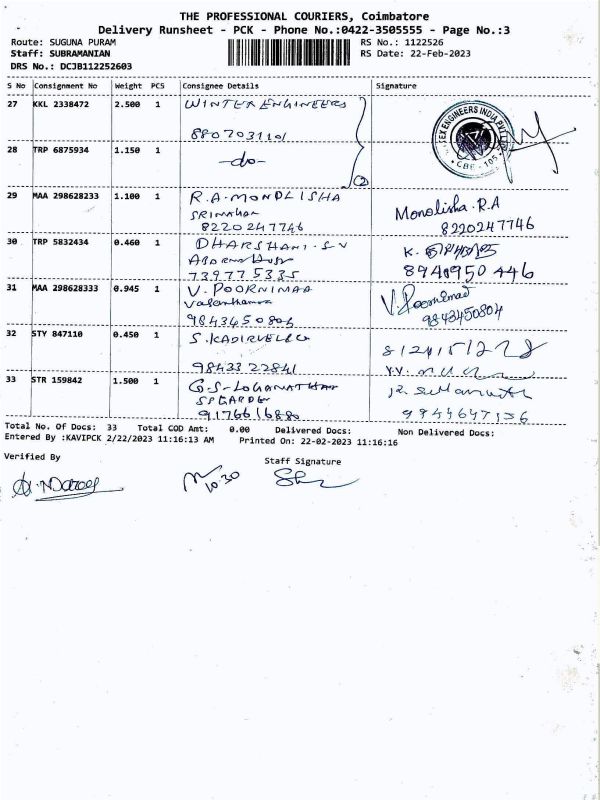 THE PROFESSIONAL COURIERS, Coimbatore
Delivery Runsheet - PCK - Phone No.:0422-3505555 - Page No.:3
Route: SUGUNA PURAM
Staff: SUBRAMANIAN
DRS No.: DCJB112252603
RS No.: 1122526
RS Date: 22-Feb-2023
S No Consignment No Weight PCS Consignee Details Signature
27 KKL 2338472 2.500 1 WINTEX ENGINEERS
8807031101
28 TRP 6875934 1.150 1 -do-
29 MAA 298628233 1.100 1 R.A.MONOLISHA Monolisha.R.A
8220247746 8220247746
30 TRP 5832434 0.460 1 DHARSHANI.S.V K.
739775335 8940950446
31 MAA 298628333 0.945 1 V.POORNIMAA
9843450804 9843450804
32 STY 847110 0.450 1 S.KADIRVELLU
9843322841
33 STR 159842 1.500 1 G.S-LOGANATHAN
SPGARDEN
9176616880
Total No. Of Docs: 33 Total COD Amt: 0.00 Delivered Docs: Non Delivered Docs:
Entered By :KAVIPCK 2/22/2023 11:16:13 AM Printed On: 22-02-2023 11:16:16
Verified By
Staff Signature
10.30